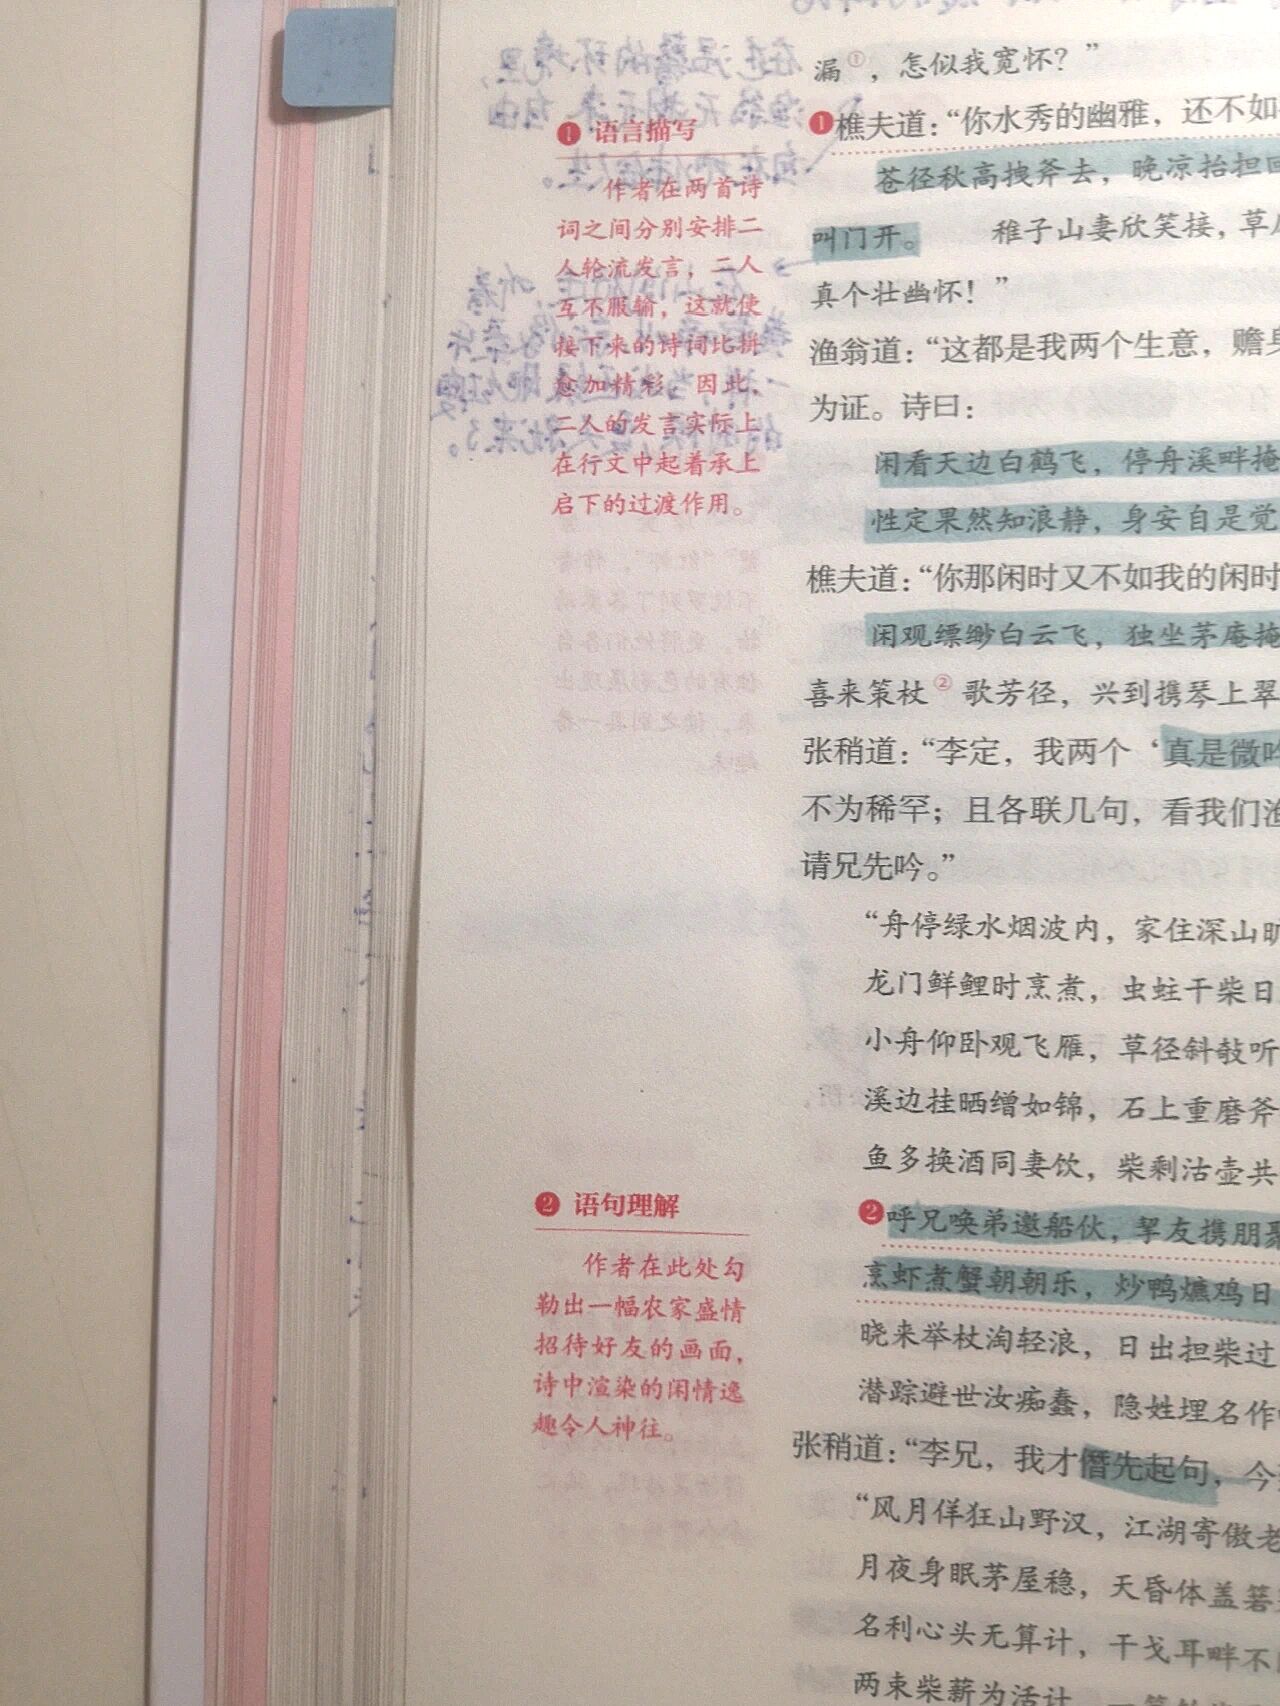 ❶ 语言描写
作者在两首诗
词之间分别安排二
人轮流发言，二人
互不服输，这就使
接下来的诗词比拼
愈加精彩。因此，
二人的发言实际上
在行文中起着承上
启下的过渡作用。
❷ 语句理解
作者在此处勾
勒出一幅农家盛情
招待好友的画面，
诗中渲染的闲情逸
趣令人神往。
漏①，怎似我宽怀？”
❶樵夫道：“你水秀的幽雅，还不如
苍径秋高拽斧去，晚凉抬担回
叫门开。 稚子山妻欣笑接，草
真个壮幽怀！”
渔翁道：“这都是我两个生意，赡身
为证。诗曰：
闲看天边白鹤飞，停舟溪畔掩
性定果然知浪静，身安自是觉
樵夫道：“你那闲时又不如我的闲时
闲观缥缈白云飞，独坐茅庵掩
喜来策杖②歌芳径，兴到携琴上翠
张稍道：“李定，我两个‘真是微吟
不为稀罕；且各联几句，看我们渔
请兄先吟。”
“舟停绿水烟波内，家住深山旷
龙门鲜鲤时烹煮，虫蛀干柴日
小舟仰卧观飞雁，草径斜敧听
溪边挂晒缯如锦，石上重磨斧
鱼多换酒同妻饮，柴剩沽壶共
❷呼兄唤弟邀船伙，挈友携朋聚
烹虾煮蟹朝朝乐，炒鸭爊鸡日
晓来举杖淘轻浪，日出担柴过
潜踪避世汝痴蠢，隐姓埋名作
张稍道：“李兄，我才僭先起句，今
“风月佯狂山野汉，江湖寄傲老
月夜身眠茅屋稳，天昏体盖箬
名利心头无算计，干戈耳畔不
两束柴薪为活计，一